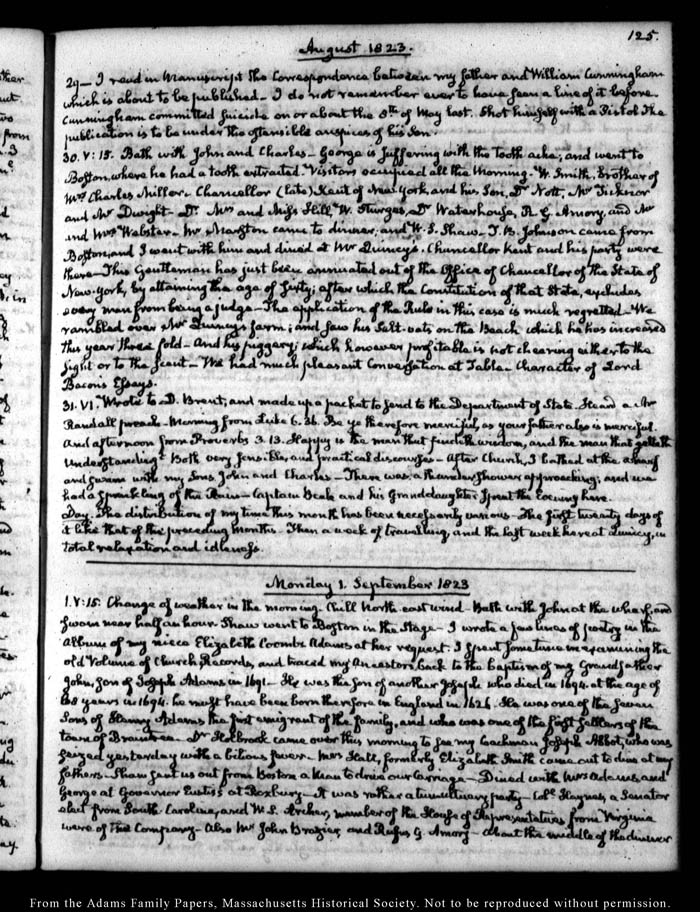 125.
August 1823.
29— I read in Manuscript the Correspondence between my father and William Cunningham
which is about to be published— I do not remember ever to have seen a line of it before.
Cunningham committed suicide on or about the of May last. Shot himself with a Pistol. The
publication is to be under the ostensible auspices of his Son.
30. V: 15. Bath with John and Charles— George is suffering with the tooth ache; and went to
Boston, where he had a tooth extracted. Visitors occupied all the Morning. W. Smith, brother of
Mrs Charles Miller— Chancellor (late) Kent of New York, and his Son, Dr Nott, Mr Ticknor
and Mr Dwight— Dr. Mrs and Miss Hill, W. Sturgis, Dr Waterhouse, R. G. Amory, and Mr
and Mrs Webster. Mr Marston came to dinner, and W. S. Shaw. J. B. Johnson came from
Boston, and I went with him and dined at Mr Quincy's. Chancellor Kent and his party were
there— This Gentleman has just been out of the Office of Chancellor of the State of
New-York, by attaining the age of sixty; after which the Constitution of that State, excludes
every man from being a judge— The application of the Rule in this case is much regretted— We
rambled over Mr Quincy's farm; and saw his Salt-vats on the Beach which he has increased
this year three fold— And his piggery; which however profitable is not chearing either to the
sight or to the scent— We had much pleasant Conversation at Table— Character of Lord
Bacons Essays.
31. VI. Wrote to D. Brent, and made up a packet to send to the Department of State. Heard a Mr
Randall preach— Morning from Luke 6. 36. Be ye therefore merciful, as your father also is merciful.
And afternoon from Proverbs 3. 13. Happy is the man that findeth wisdom, and the man that getteth
Understanding. Both very sensible, and practical discourses— After Church, I bathed at the wharf
and swam with my Sons John and Charles— There was a thunder shower approaching; and we
had a sprinkling of the Rain— Captain Beale and his Granddaughter spent the Evening here.
Day. The distribution of my time this month has been necessarily various— The first twenty days of
it like that of the preceding months. Then a week of travelling, and the last week here at Quincy, in
total relaxation and idleness.
Monday 1. September 1823
1. V: 15. Change of weather in the morning. Chill North east wind— Bath with John at the wharf, and
swam near half an hour. Shaw went to Boston in the Stage— I wrote a few lines of poetry in the
Album of my niece Elizabeth Coombs Adams at her request. I spent some time in examining the
old Volume of Church Records, and traced my Ancestors, back to the baptism of my Grandfather
John, son of Joseph Adams in 1691— He was the son of another Joseph who died in 1694. at the age of
68 years in 1694. he must have been born therefore in England in 1626. He was one of the seven
Sons of Henry Adams the first emigrant of the family, and who was one of the first settlers of the
town of Braintree— Dr Holbrook came over this morning to see my Coachman Joseph Abbot, who was
seized yesterday with a bilious fever— Mrs Hall, formerly Elizabeth Smith came out to dine at my
fathers— Shaw sent us out from Boston a Man to drive our Carriage— Dined with Mrs Adams, and
George at Governor Eustis's at Roxbury— It was rather a tumultuary party— Coll. Haynes, a Senator
elect from South Carolina, and W. S. Archer, member of the House of Representatives from Virginia
were of the Company— Also Mr John Brazier, and Rufus G. Amory— About the middle of the dinner
From the Adams Family Papers, Massachusetts Historical Society. Not to be reproduced without permission.